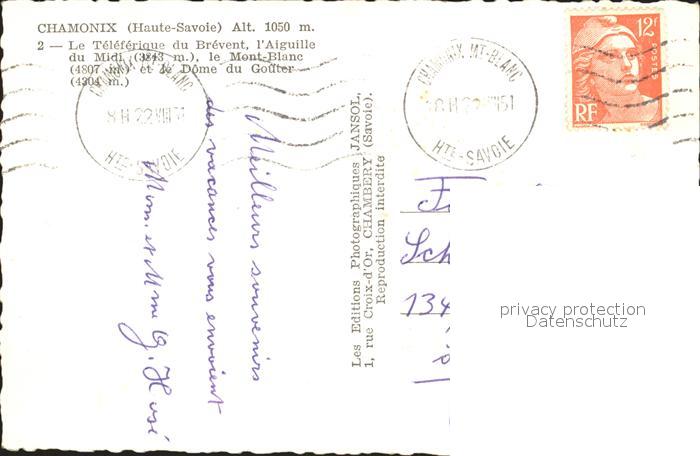 CHAMONIX (Haute-Savoie) Alt. 1050 m.
2 — Le Téléférique du Brévent, l'Aiguille
du Midi (3843 m.), le Mont-Blanc
(4807 m.) et le Dôme du Goûter
(4304 m.)
CHAMONIX MT-BLANC
8H 22 VIII 51
HTE-SAVOIE
CHAMONIX MT-BLANC
8H 22 VIII 51
HTE-SAVOIE
12f
POSTES
RF
Meilleurs souvenirs
des vacances vous envoient
Mons. et Mme G.
Les Editions Photographiques JANSOL,
1, rue Croix-d'Or, CHAMBÉRY (Savoie).
Reproduction interdite
Sch
134
privacy protection
Datenschutz